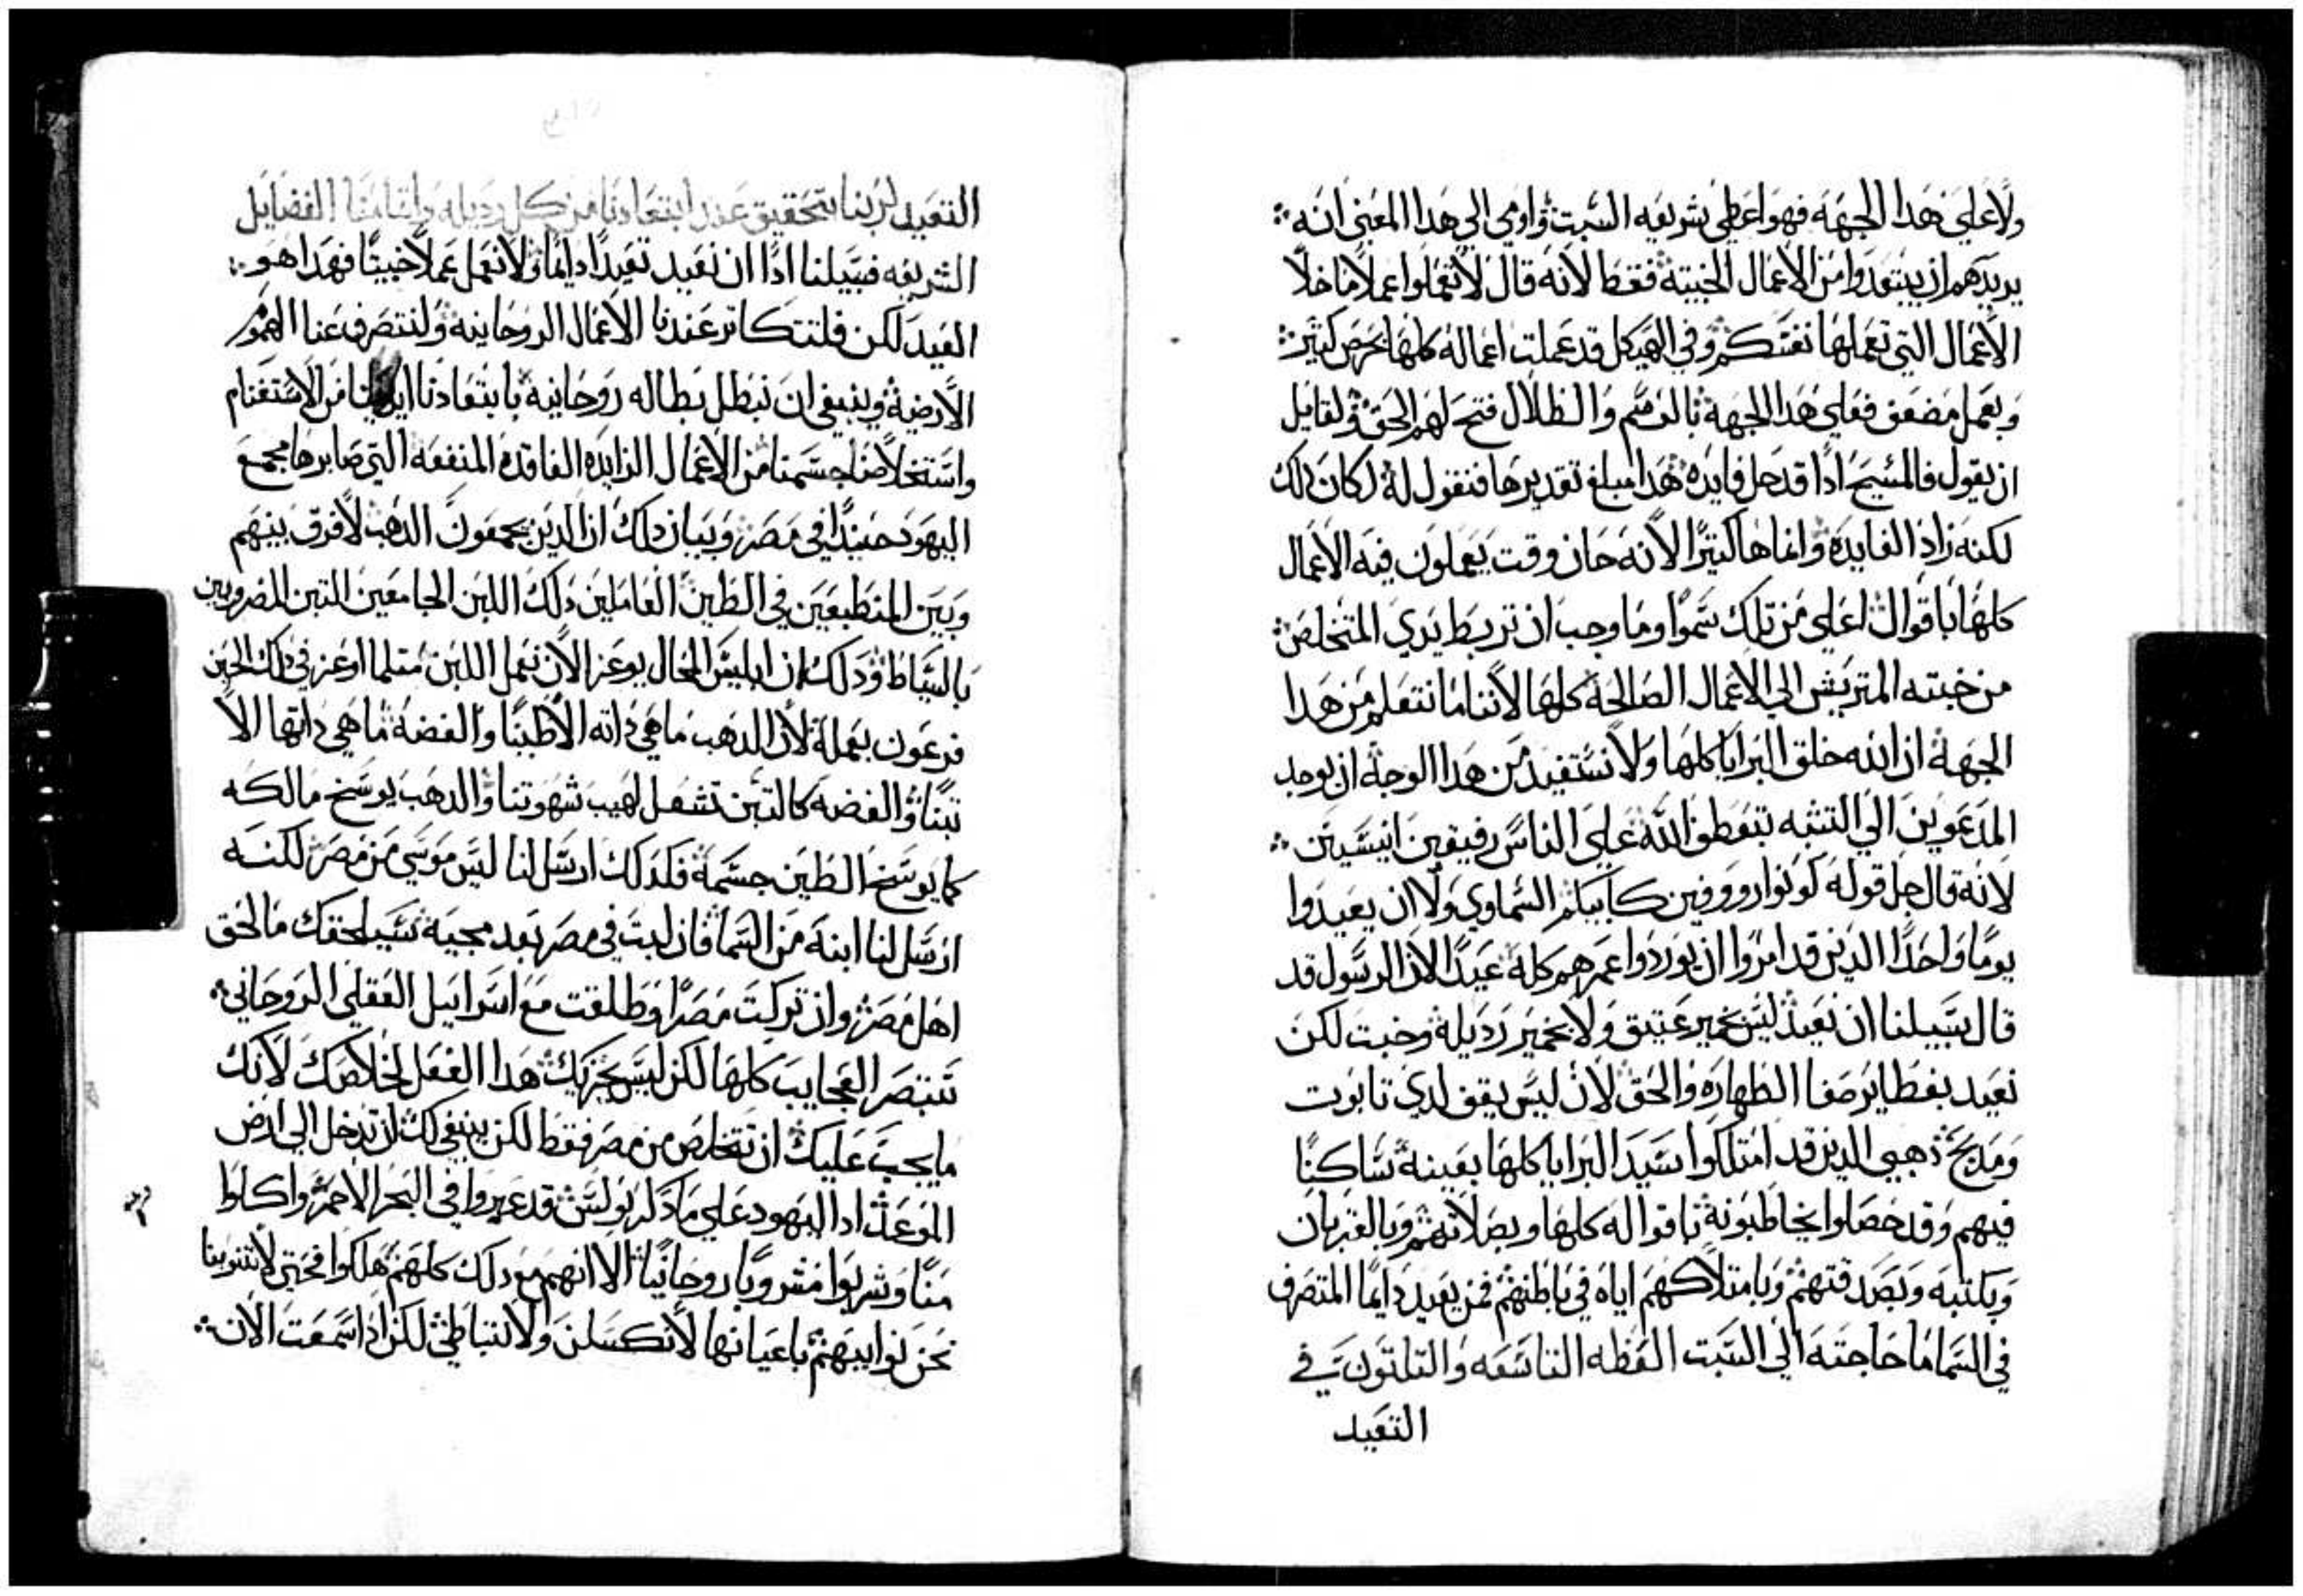 ولا على هدا الجهه فهو اعطي بشريعه السبت واومي الي هدا المعني انه
يريدهم ان يبتعدوا من الاعمال الخبيته فقط لانه قال لا تعملوا عملا ما خلا
الاعمال التي تعملها نفسكم وفي الهيكل قد عملت اعماله كلها بحرص كتير
وبعمل مضعف فعلي هدا الجهه بالرسم والظلال فتح لهم الحق ولقايل
ان يقول فالمسيح ادا قد حل فايده هدا مبلغ تقديرها فنقول له لا كان دلك
لكنه زاد الفايده وانماها كتيرا لانه حان وقت يعملون فيه الاعمال
كلها باقوال اعلي من تلك سموا وما وجب ان تربط يدي المتخلص
من خبته المتريش الي الاعمال الصالحه كلها لاننا ما نتعلم من هدا
الجهه ان الله خلق البرايا كلها ولا نستفيد من هدا الوجه ان يوجد
المدعوين الي التشبه بتعطف الله علي الناس رفيقين انيسين
لانه قال جل قوله كونوا رووفين كابيكم السماوي ولا ان يعيدوا
يوما واحدا الدين قد امروا ان يوردوا عمرهم كله عيدا لان الرسول قد
قال سبيلنا ان نعيد ليس بخمير عتيق ولا بخمير رديله وخبت لكن
نعيد بفطاير صفا الطهاره والحق لان ليس يقف لدي تابوت
ومدبح دهبي الدين قد امتلكوا سيد البرايا كلها بعينه ساكنا
فيهم وقد حصلوا يخاطبونه باقواله كلها وبصلاتهم وبالقربان
وبكتبه وبصدقتهم وبامتلاكهم اياه في باطنهم فمن يعيد دايما المتصرف
في السما ما حاجته الي السبت العظه التاسعه والتلتون في
التعيد
التعيد لربنا بتحقيق عند ابتعادنا من كل رديله واتقامنا الفضايل
الشريفه فسبيلنا ادا ان نعيد تعيدا دايما ولا نعمل عملا خبيتا فهدا هو
العيد لكن فلتتكاتر عندنا الاعمال الروحانيه ولنتصرف عنا الهموم
الارضيه وينبغي ان نبطل بطاله روحانيه بابتعادنا ايدينا من الاستغنام
واستخلاصنا جسمنا من الاعمال الزايده الفاقده المنفعه التي صابرها مجمع
اليهود حينيدا في مصر وبيان دلك ان الدين يجمعون الدهب لا فرق بينهم
وبين المنطبعين في الطين العاملين دلك اللبن الجامعين التبن المضروبين
بالسياط ودلك ان ابليس المحال يوعز الان نعمل اللبن متلما اوعز في دلك الحين
فرعون بعمله لان الدهب ما هي داته الا طينا والفضه ما هي داتها الا
تبنا والفضه كالتبن تشعل لهيب شهوتنا والدهب يوسخ مالكه
كما يوسخ الطين جسمه فلدلك ارسل لنا ليس موسي من مصر لكنه
ارسل لنا ابنه من السما فان لبت في مصر بعد مجيه سيلحقك ما لحق
اهل مصر وان تركت مصر وطلقت مع اسراييل العقلي الروحاني
تبتصر العجايب كلها لكن ليس يجزيك هدا الفعل لخلاصك لانك
ما يجب عليك ان تتخلص من مصر فقط لكن ينبغي لك ان تدخل الي ارض
الموعد اد اليهود علي ما دكر بولس قد عبروا في البحر الاحمر واكلوا
منا وشربوا مشروبا روحانيا الا انهم مع دلك كلهم هلكوا فحتي لا تنوبنا
نحن نوايبهم باعيانها لا نكسلن ولا نتباطي لكن ادا سمعت الان